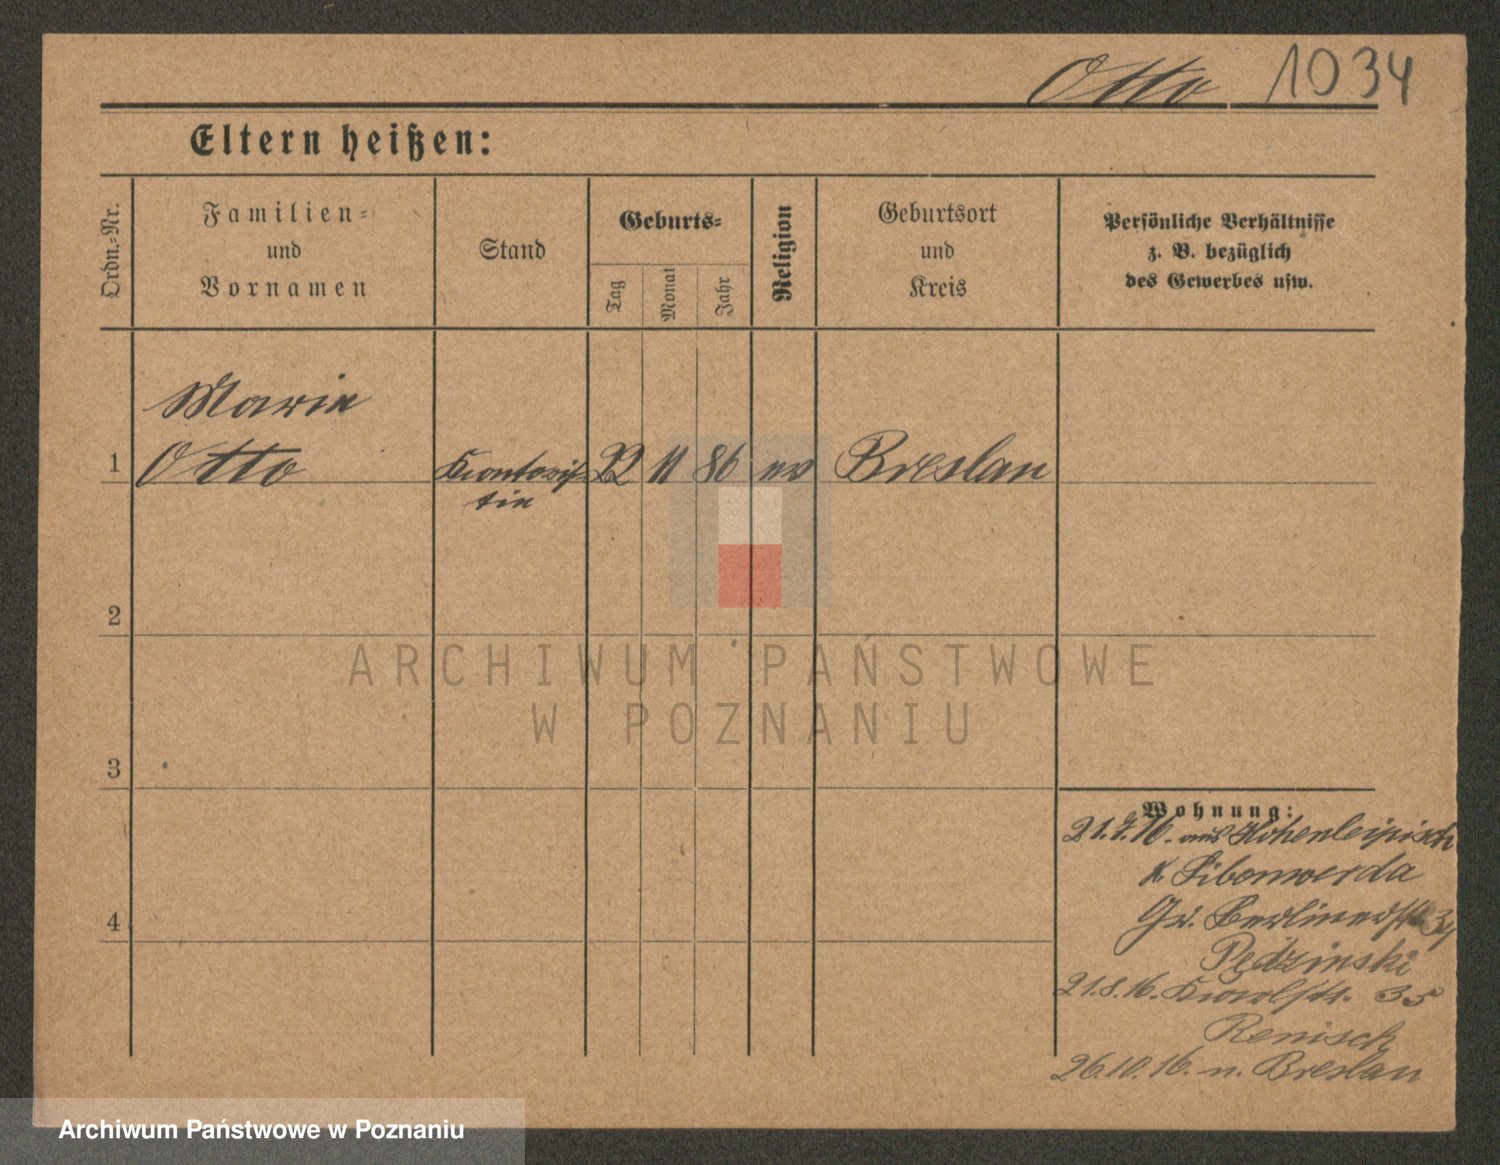 Otto 1034
Eltern heißen:
Ordn.=Nr.
Familien=
und
Vornamen
Stand
Geburts=
Tag
Monat
Jahr
Religion
Geburtsort
und
Kreis
Persönliche Verhältnisse
z. B. bezüglich
des Gewerbes usw.
Marie
1 Otto Kontoris 22 11 86 ev Breslau
tin
2
ARCHIWUM PAŃSTWOWE
W POZNANIU
3
Wohnung:
21.7.16. aus Hohenleipisch
K. Libenwerda
Gr. Berlinerstr. 34
Pędzinski
21.8.16. 35
Renisch
26.10.16. n. Breslau
4
Archiwum Państwowe w Poznaniu